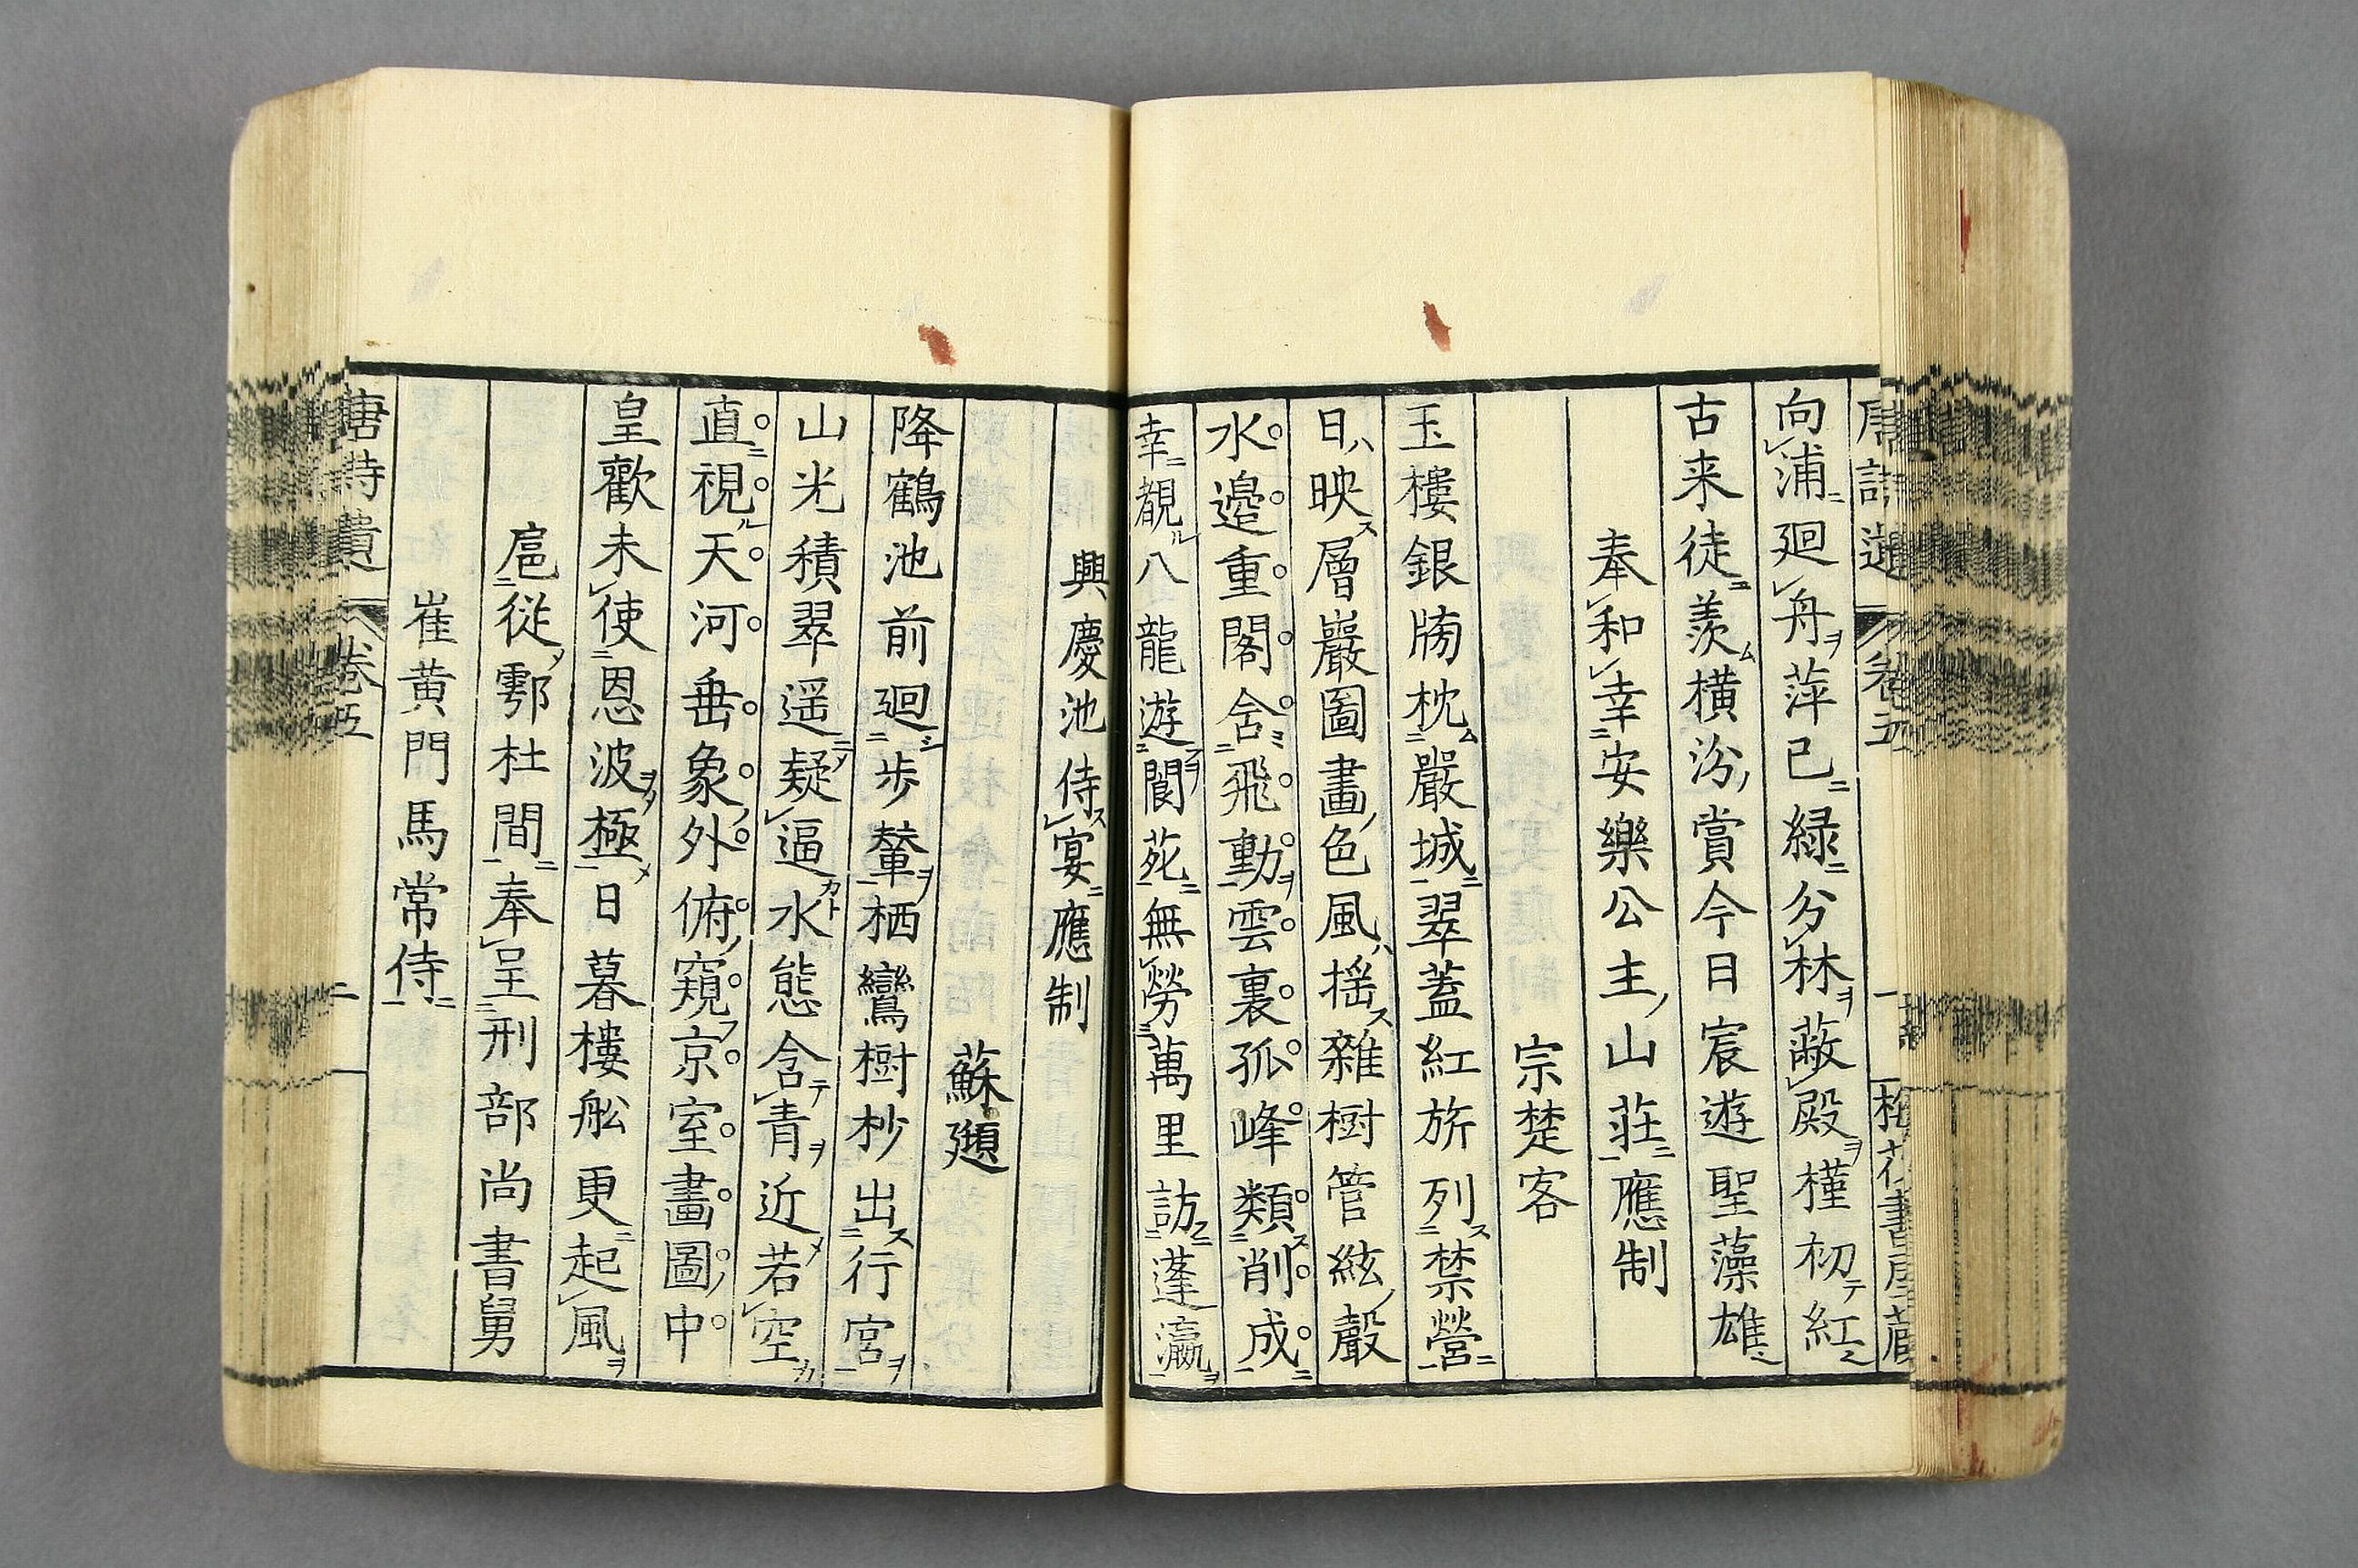 向浦廻舟萍已緑分林蔽殿槿初紅
古来徒羨横汾賞今日宸遊聖藻雄
奉和幸安樂公主山荘應制
宗楚客
玉樓銀牓枕嚴城翠蓋紅旂列禁營
日映層巖圖畫色風揺雜樹管絃聲
水邉重閣含飛動雲裏孤峰類削成
幸覩八龍遊閬苑無勞萬里訪蓬瀛
興慶池侍宴應制
蘇頲
降鶴池前廻歩輦栖鸞樹杪出行宮
山光積翠遥疑逼水態含青近若空
直視天河垂象外俯窺京室畫圖中
皇歡未使恩波極日暮樓舩更起風
扈從鄠杜間奉呈刑部尚書舅
崔黄門馬常侍
唐詩 卷五 二